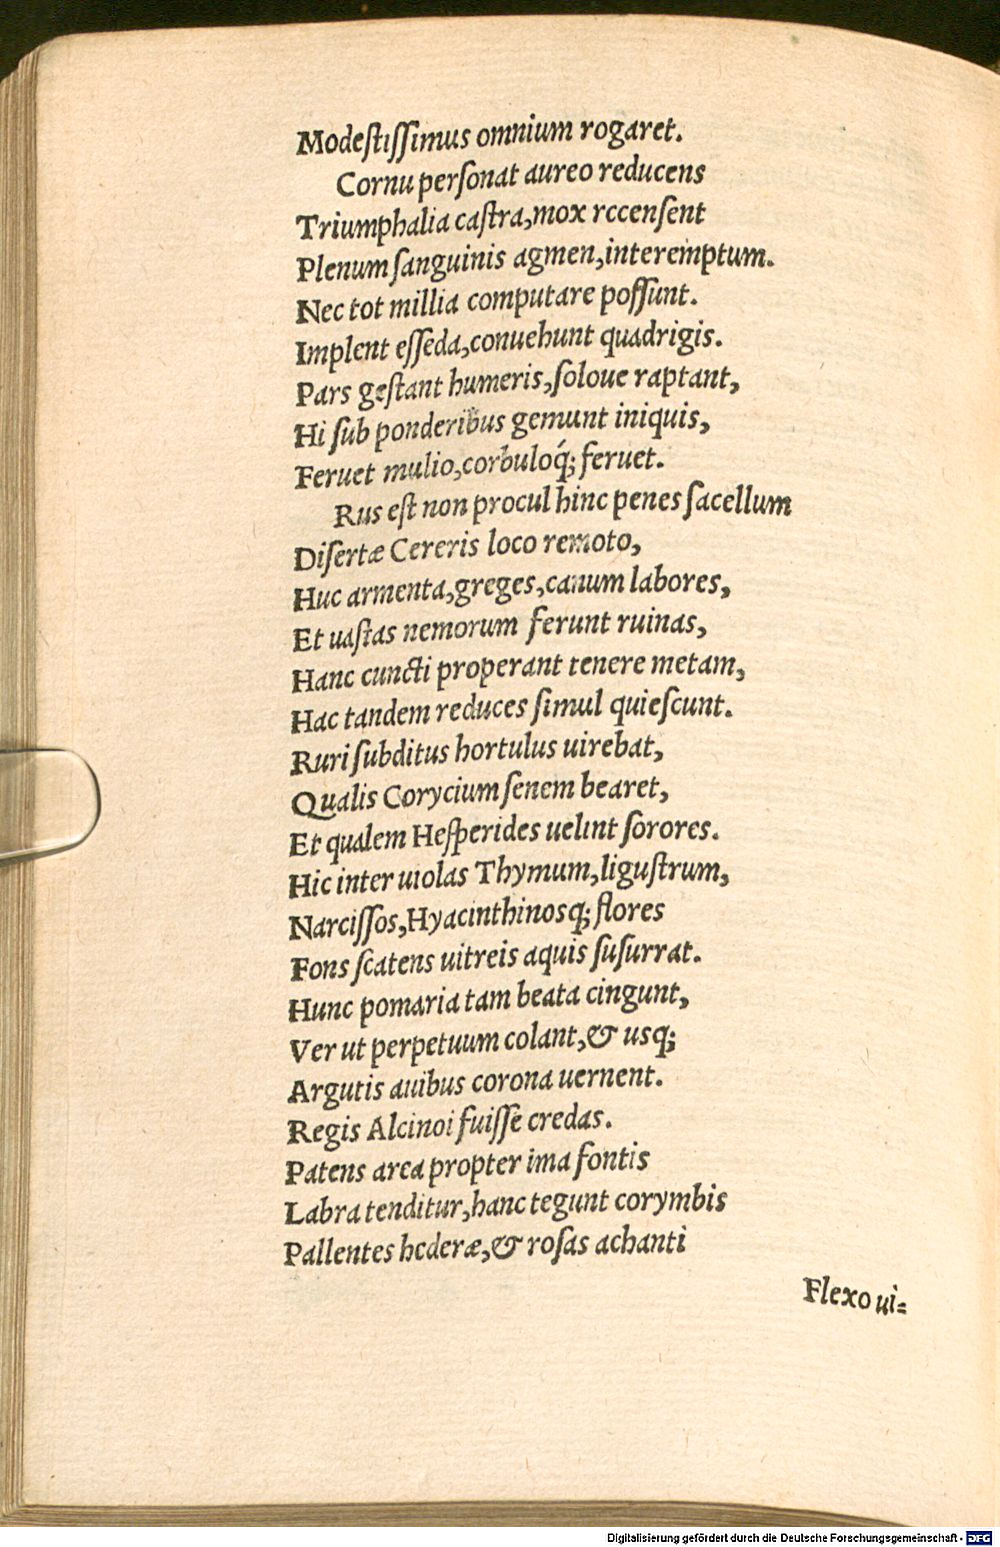 Modestissimus omnium rogaret.
Cornu personat aureo reducens
Triumphalia castra,mox rccensent
Plenum sanguinis agmen,interemptum.
Nec tot millia computare possunt.
Implent esseda,conuehunt quadrigis.
Pars gestant humeris,soloue raptant,
Hi sub ponderibus gemunt iniquis,
Feruet mulio,corbuloq́; feruet.
Rus est non procul hinc penes sacellum
Disertæ Cereris loco remoto,
Huc armenta,greges,canum labores,
Et uastas nemorum ferunt ruinas,
Hanc cuncti properant tenere metam,
Hac tandem reduces simul quiescunt.
Ruri subditus hortulus uirebat,
Qualis Corycium senem bearet,
Et qualem Hesperides uelint sorores.
Hic inter uiolas Thymum,ligustrum,
Narcissos,Hyacinthinosq; flores
Fons scatens uitreis aquis susurrat.
Hunc pomaria tam beata cingunt,
Ver ut perpetuum colant,& usq;
Argutis auibus corona uernent.
Regis Alcinoi fuisse credas.
Patens area propter ima fontis
Labra tenditur,hanc tegunt corymbis
Pallentes hederæ,& rosas achanti
Flexo ui=
Digitalisierung gefördert durch die Deutsche Forschungsgemeinschaft - DFG